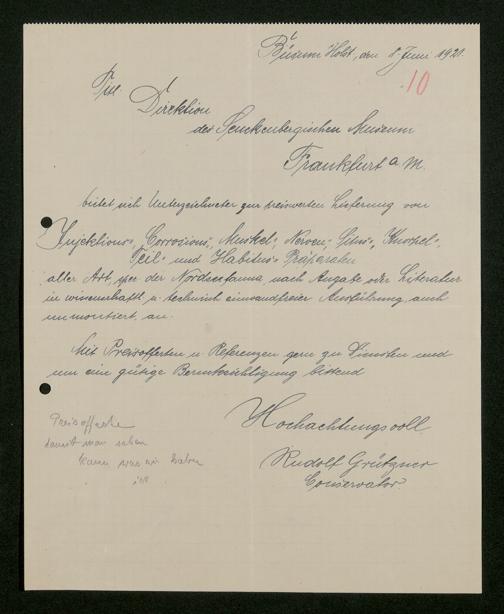 Büsum Holst., den 8. Juni 1921.
10
Titl. Direktion
des Senckenbergischen Museum
Frankfurt a M.
bietet sich Unterzeichneter zur preiswerten Lieferung von
Injektions-, Corrosions-, Muskel-, Nerven-, Situs-, Knorpel-,
Teil- und Habitus-Präparaten
aller Art, spez. der Nordseefauna, nach Angabe oder Literatur
in wissenschaftl. u. technisch einwandfreier Ausführung, auch
unmontiert, an.
Mit Preisofferten u Referenzen gern zu Diensten und
um eine gütige Berücksichtigung bittend
Hochachtungsvoll
Rudolf Grützner
Conservator
Preisofferte
damit man sehen
kann was